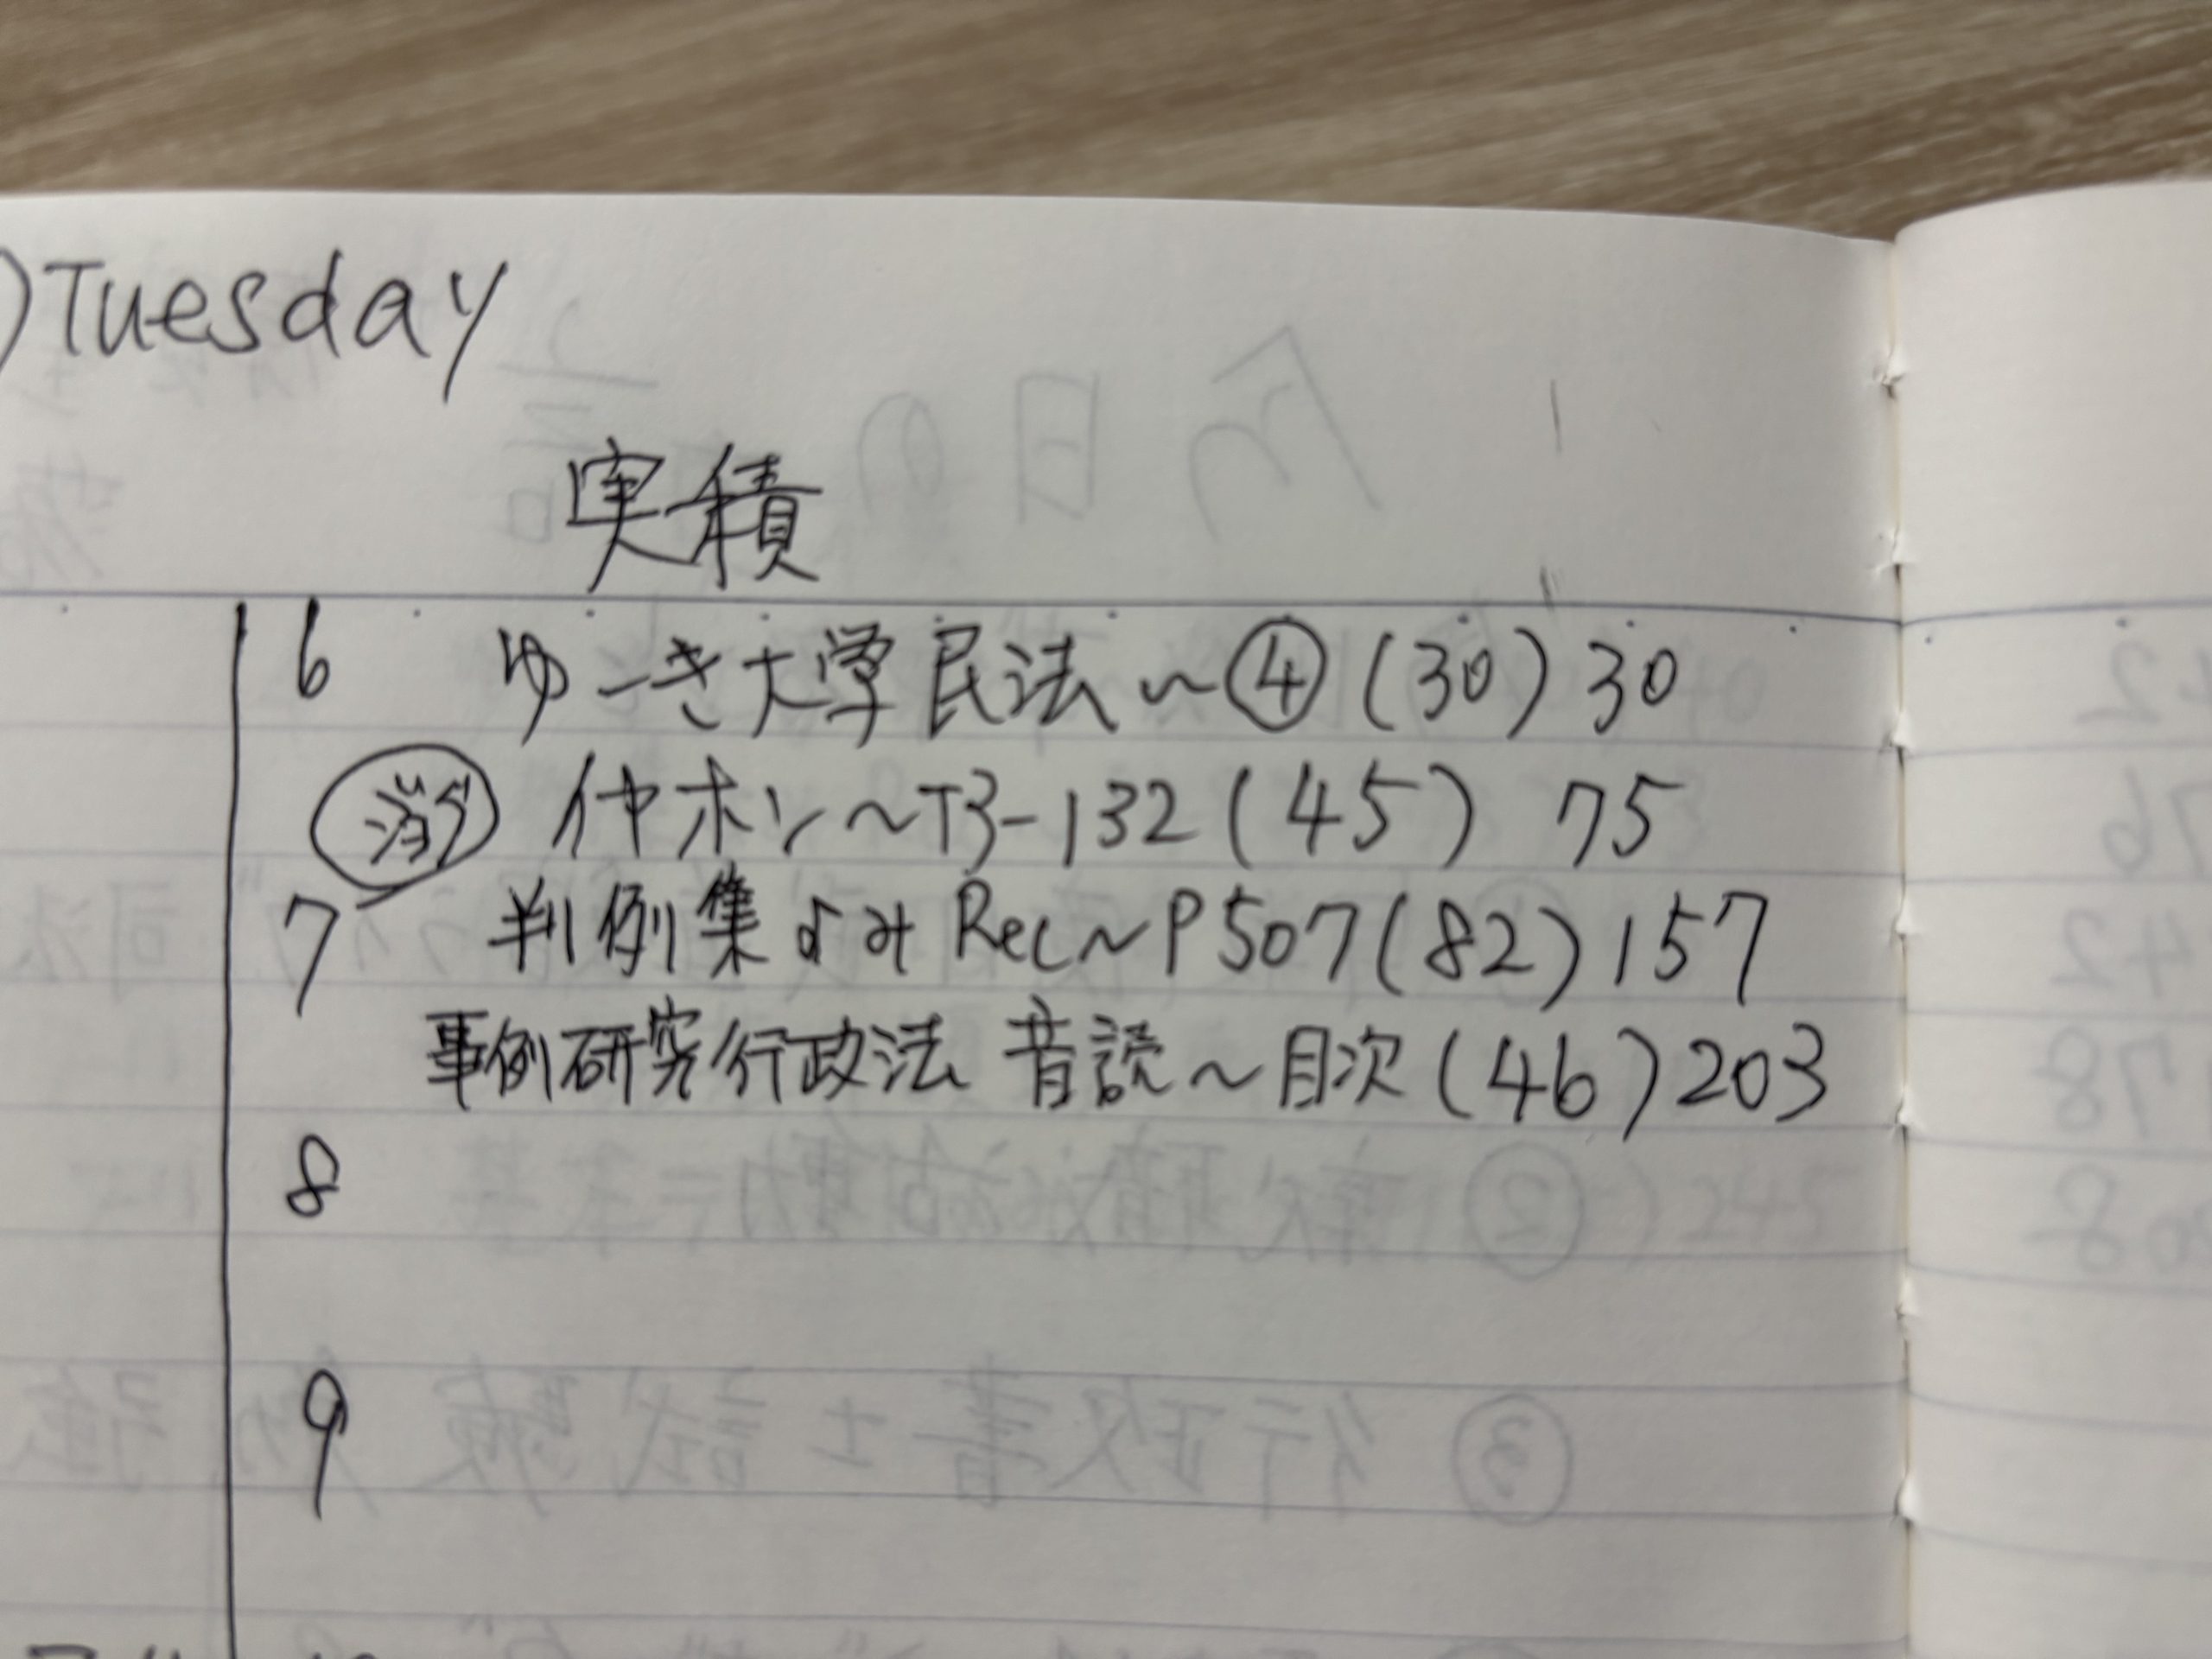 )Tuesday
実積
6 ゆーき大学民法〜④(30)30
ジョグ イヤホン〜T3-132(45) 75
7 判例集よみRec〜P507(82)157
事例研究行政法 音読〜目次(46)203
8
9